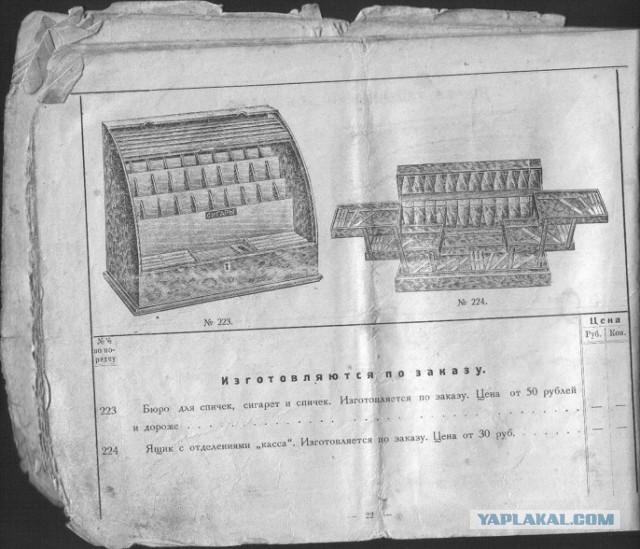 СИГАРЫ
№ 223.
№ 224.
№ №
по по-
рядку
Цена
Руб. Коп.
Изготовляются по заказу.
223 Бюро для спичек, сигарет и спичек. Изготовляется по заказу. Цена от 50 рублей
и дороже . . . . . . . . . . . . . . . . . . . . . . . . . . . . — —
224 Ящик с отделениями „касса“. Изготовляется по заказу. Цена от 30 руб. . . . . . . — —
— 22 —
YAPLAKAL.COM